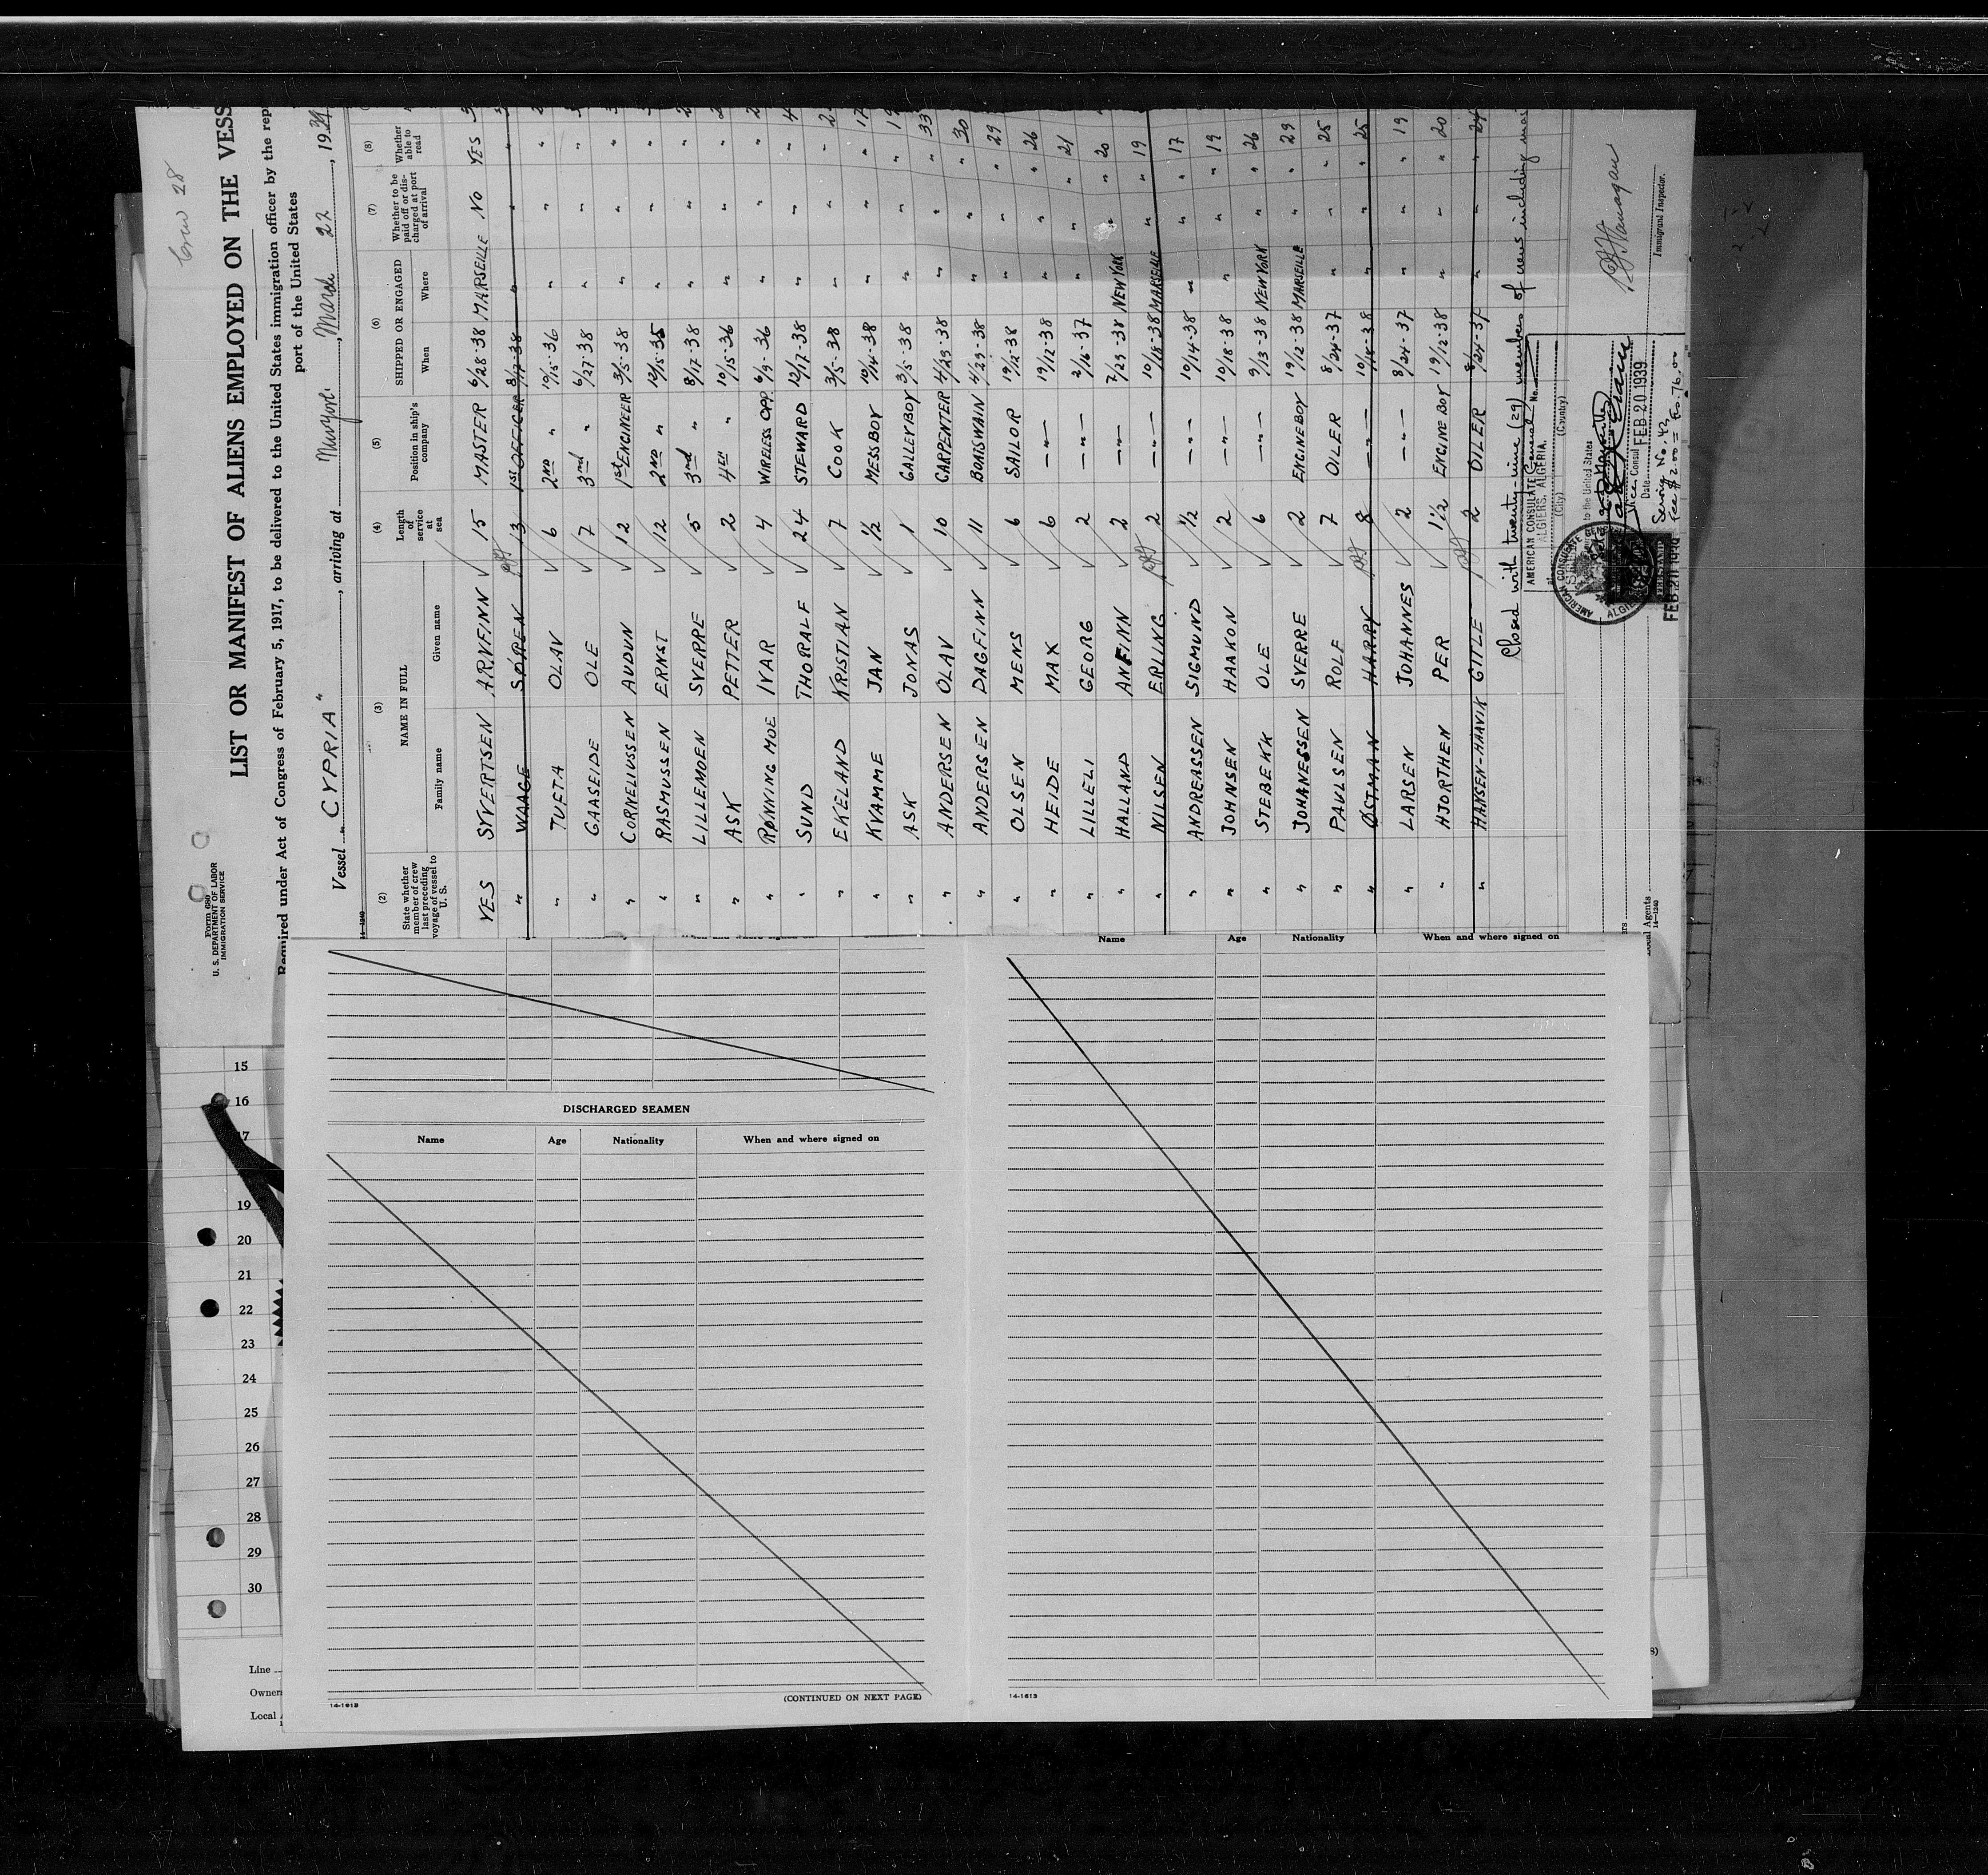 Crew 28
Form 680
U. S. DEPARTMENT OF LABOR
IMMIGRATION SERVICE
LIST OR MANIFEST OF ALIENS EMPLOYED ON THE VESS
Required under Act of Congress of February 5, 1917, to be delivered to the United States immigration officer by the rep
port of the United States
Vessel "CYPRIA", arriving at New York, March 22, 1939
14-1240
(2) (3) (4) (5) (6) (7) (8)
State whether member of crew last preceding voyage of vessel to U. S. NAME IN FULL Length of service at sea Position in ship's company SHIPPED OR ENGAGED Whether to be paid off or discharged at port of arrival Whether able to read
Family name Given name When Where
YES SYVERTSEN ARNFINN √ 15 MASTER 6/28-38 MARSEILLE NO YES
" WAAGE SÖREN 13 1st OFFICER 8/17-38 " " "
" TVETA OLAV √ 6 2ND " 10/15-36 " " "
" GAASEIDE OLE √ 7 3nd " 6/27-38 " " "
" CORNELIUSSEN AUDUN √ 12 1st ENGINEER 3/5-38 " " "
" RASMUSSEN ERNST √ 12 2ND " 10/15-35 " " "
" LILLEMOEN SVERRE √ 5 3nd " 8/17-38 " " "
" ASK PETTER √ 2 4TH " 10/15-36 " " "
" RØNNINGMOE IVAR √ 4 WIRELESS OPP. 6/9-36 " " "
" SUND THORALF √ 24 STEWARD 12/17-38 " " " 4
" EKELAND KRISTIAN √ 7 COOK 3/5-38 " " " 2
" KVAMME JAN √ 1/2 MESSBOY 10/14-38 " " " 17
" ASK JONAS √ 1 GALLEYBOY 3/5-38 " " " 19
" ANDERSEN OLAV √ 10 CARPENTER 4/29-38 " " " 33
" ANDERSEN DAGFINN √ 11 BOATSWAIN 4/29-38 " " " 30
" OLSEN MENS √ 6 SAILOR 19/12-38 " " " 29
" HEIDE MAX √ 6 —"— 19/12-38 " " " 26
" LILLELI GEORG √ 2 —"— 2/16-37 " " " 21
" HALLAND ANFINN √ 2 —"— 7/29-38 NEW YORK " " 20
" NILSEN ERLING 2 —"— 10/18-38 MARSEILLE " " 19
" ANDREASSEN SIGMUND √ 1/2 —"— 10/14-38 " " " 17
" JOHNSEN HAAKON √ 2 —"— 10/18-38 " " " 19
" STEBEKK OLE √ 6 —"— 9/13-38 NEW YORK " " 26
" JOHANESSEN SVERRE √ 2 ENGINEBOY 19/12-38 MARSEILLE " " 29
" PAULSEN ROLF √ 7 OILER 8/24-37 " " " 25
" ØSTMAN HARRY 8 —"— 10/18-38 " " " 25
" LARSEN JOHANNES √ 2 —"— 8/24-37 " " " 19
" HJORTHEN PER √ 1 1/2 ENGINE BOY 19/12-38 " " " 20
" HANSEN-HAAVIK GITLE 2 OILER 8/24-37 " " " 24
Closed with twenty-nine (29) members of crew including mas
AMERICAN CONSULATE General
ALGIERS, ALGERIA.
No.
at
(City) (Country)
to the United States
Vice Consul
Date FEB 20 1939
Service No. 42
Fee $2.00 = Fc. 76.00
FEB 20 1939
AMERICAN CONSULATE GE
ALGIE
FEE STAMP
Immigrant Inspector.
Local Agents
14-1240
Name Age Nationality When and where signed on
DISCHARGED SEAMEN
Name Age Nationality When and where signed on
(CONTINUED ON NEXT PAGE)
14-1613
14-1613
15
16
17
19
20
21
22
23
24
25
26
27
28
29
30
Line
Owner
Local